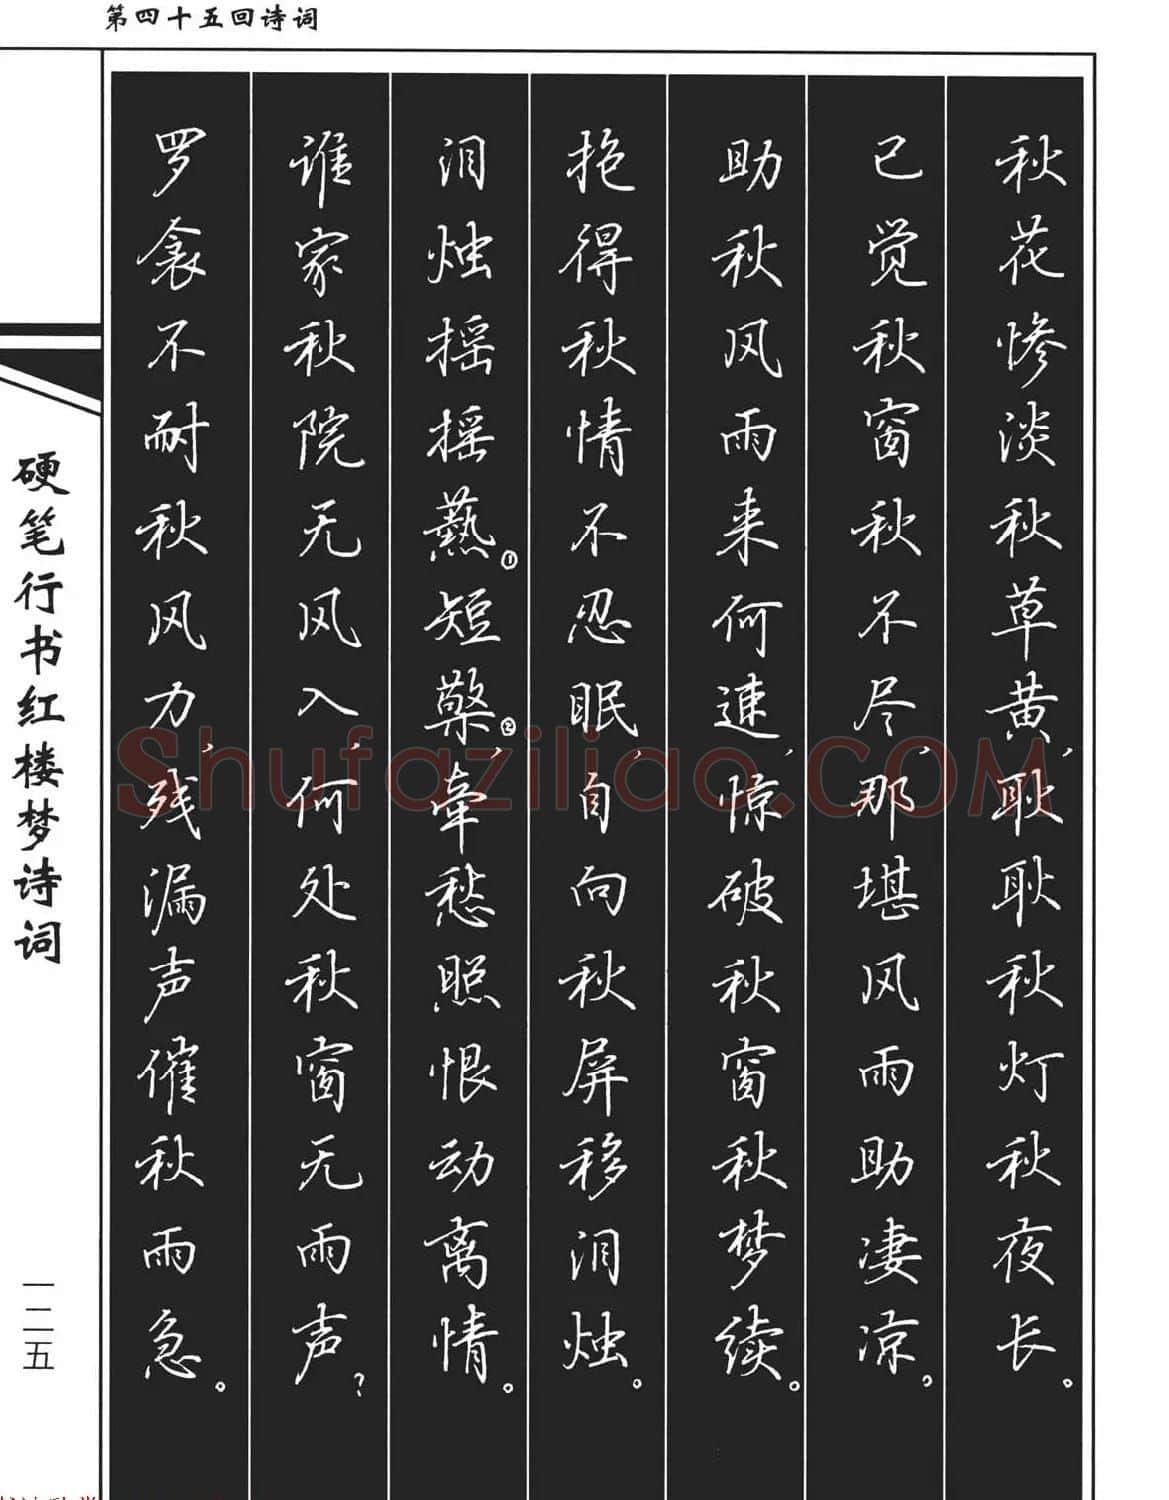 第四十五回诗词
秋花惨淡秋草黄,耿耿秋灯秋夜长。
已觉秋窗秋不尽,那堪风雨助凄凉。
助秋风雨来何速,惊破秋窗秋梦续。
抱得秋情不忍眠,自向秋屏移泪烛。
泪烛摇摇爇①短檠②,牵愁照恨动离情。
谁家秋院无风入,何处秋窗无雨声?
罗衾不耐秋风力,残漏声催秋雨急。
硬笔行书红楼梦诗词
一二五
Shufaziliao.COM